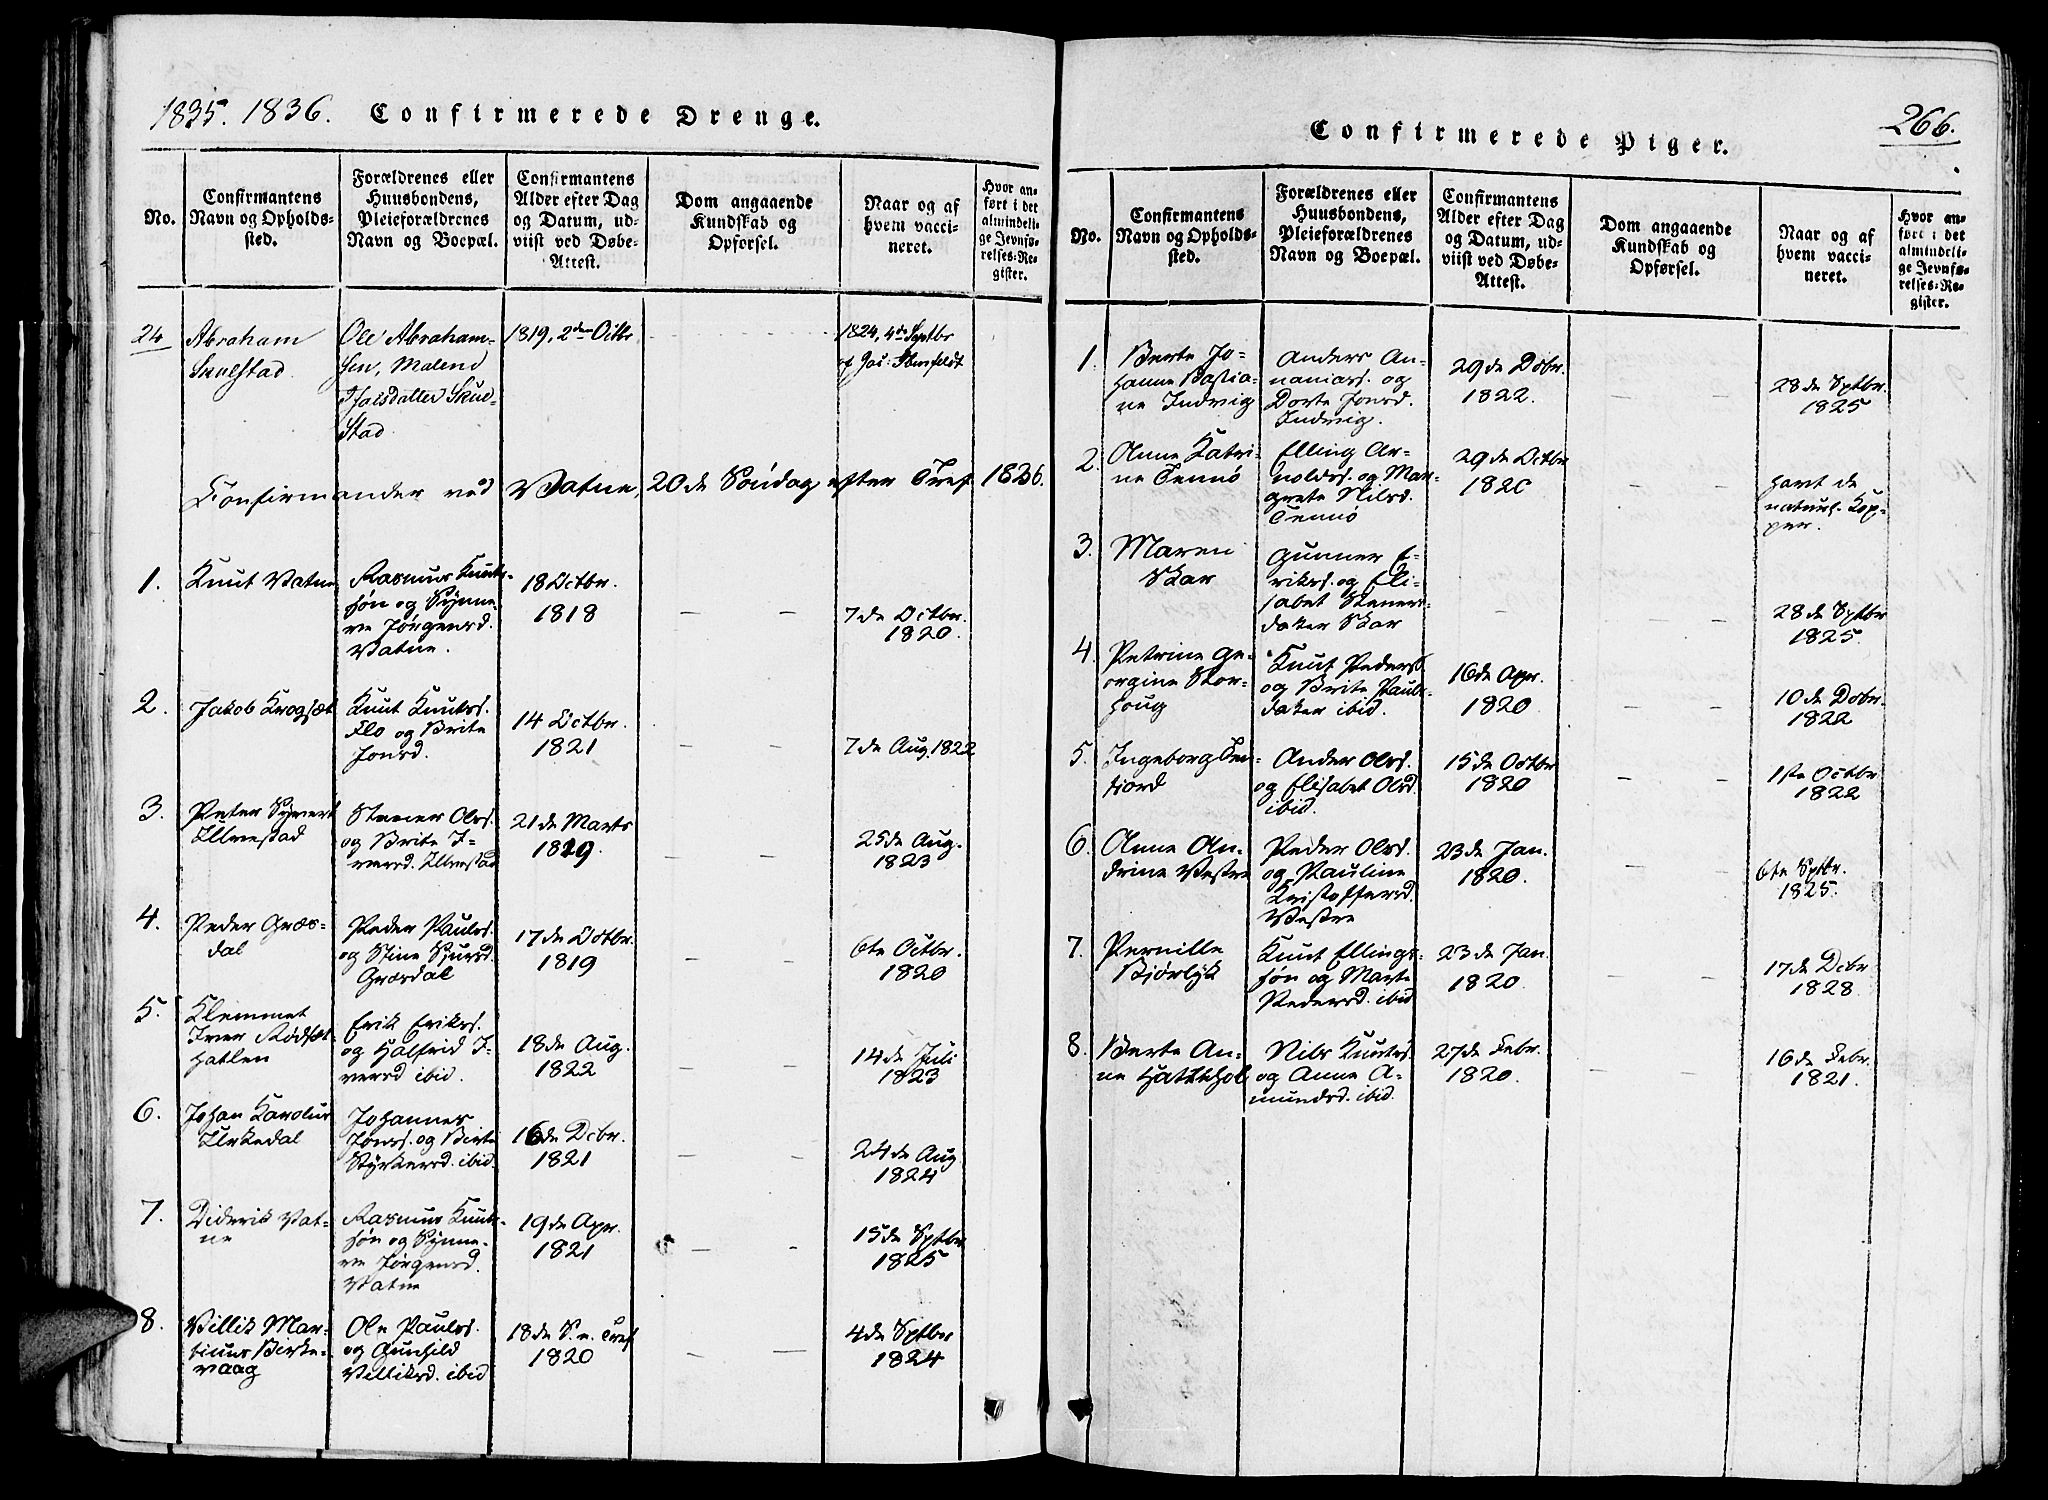 1835. 1836. Confirmerede Drenge.
No.
Confirmantens
Navn og Opholds-
sted.
Forældrenes eller
Huusbondens,
Pleieforældrenes
Navn og Boepæl.
Confirmantens
Alder efter Dag
og Datum, ud-
viist ved Døbe-
Attest.
Dom angaaende
Kundskab og
Opførsel.
Naar og af
hvem vacci-
neret.
Hvor an-
ført i det
almindeli-
ge Jevnfø-
relses-Re-
gister.
24
Abraham
Skuestad
Ole Abraham-
sen, Malene
Skue-
stad
1819, 2den Octbr
1824, 4de Septbr
Confirmander ved Vatne, 20de Søndag efter Tref. 1836.
1.
Knut Vatne
Rasmus Knuts-
søn og Synne-
ve Jørgensd.
Vatne.
18 Octbr.
1818
7de Octbr.
1820.
2.
Jakob Krogsæt
Knut Knutss.
Flo og Brite
Jonsd.
14 Octbr.
1821
7de Aug. 1822
3.
Peter Syvert
Ulvestad
Stener Olss.
og Brite I-
versd. Ulvestad
21de Marts
1819.
25de Aug.
1823
4.
Peder Græs-
dal
Peder Paulss.
og Stine Sjursd.
Græsdal
17de Octbr.
1819
6te Octbr.
1820
5.
Klemmet
Iver Rødset-
hatlen
Erik Erikss.
og Halfrid I-
versd ibid.
18de Aug.
1822
14de Juli
1823
6.
Johan Karolus
Urkedal
Johannes
Jonss. og Birte
Styrkersd. ibid.
16de Dcbr.
1821
24de Aug.
1824
7.
Diderik Vat-
ne
Rasmus Knuts-
søn og Synne-
ve Jørgensd.
Vatne
19de Apr.
1821
15de Sptbr
1825
8.
Villik Mar-
tinus Birke-
vaag
Ole Paulss.
og Gunhild
Villiksd. ibid
18de S. e. Tref
1820
4de Sptbr
1824
266.
Confirmerede Piger.
No.
Confirmantens
Navn og Opholds-
sted.
Forældrenes eller
Huusbondens,
Pleieforældrenes
Navn og Boepæl.
Confirmantens
Alder efter Dag
og Datum, ud-
viist ved Døbe-
Attest.
Dom angaaende
Kundskab og
Opførsel.
Naar og af
hvem vacci-
neret.
Hvor an-
ført i det
almindeli-
ge Jevnfø-
relses-Re-
gister.
1.
Berte Jo-
hanne Bastia-
ne Indvig
Anders An-
naniass. og
Dorte Jonsd.
Indvig.
29de Dcbr.
1822.
28de Sptbr.
1825
2.
Anne Katri-
ne Tennø
Elling Ar-
noldss. og Mar-
grete Nilsd.
Tennø
29de Octbr
1820
havt de
naturl. Kop-
per.
3.
Maren
Skar
Gunner E-
rikss. og Eli-
sabet Steners-
dater Skar
28de Sptbr
1825.
4.
Petrine Ge-
orgine Stor-
houg
Knut Pederss.
og Brite Pauls-
dater ibid.
16de Apr.
1820
10de Dcbr.
1822
5.
Ingeborg Ten-
fiord
Ander Olss.
og Elisabet Olsd.
ibid.
15de Octbr
1820
1ste Octbr
1822
6.
Anne An-
drine Vestre
Peder Olss.
og Pauline
Kristoffersd.
Vestre
23de Jan.
1820.
6te Sptbr.
1825.
7.
Pernille
Bjørlyk
Knut Ellings-
søn og Marte
Pedersd. ibid
23de Jan.
1820.
17de Dcbr
1828
8.
Berte An-
ne Hattehol
Nils Knutss.
og Anne A-
mundsd. ibid.
27de Febr.
1820.
16de Febr.
1821.